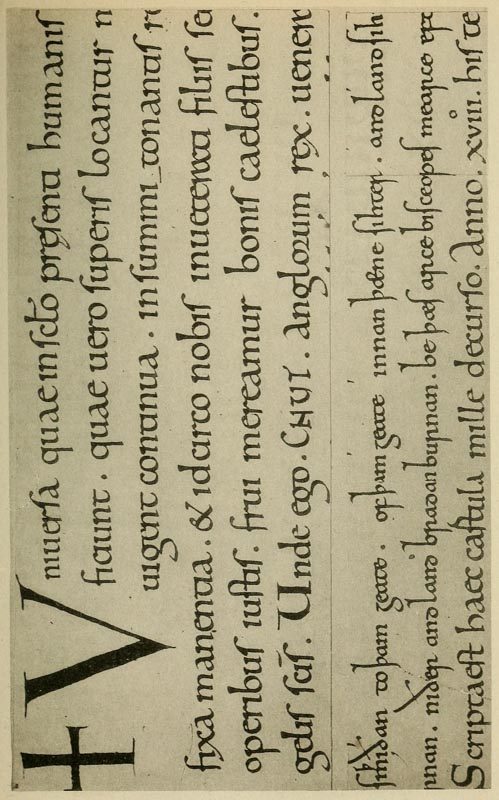 + Vniuersa quae in sclo presenti humanis
ficiunt . quae uero superis locantur n
uigent continua . in summi tonantis re
fixa manentia . & idcirco nobis filiis se
operibus iustis . frui mereamur bonis caelestibus .
gelis scis . Unde ego . CNUT . Anglorum rex . uener
to þam geate . of þam geate innan þæne sihter . andlang sih
man . niðer andland bradan burnan . be þæs arcebisceopes mearce
Scripta est haec castula mille decurso . Anno . xviii . his te